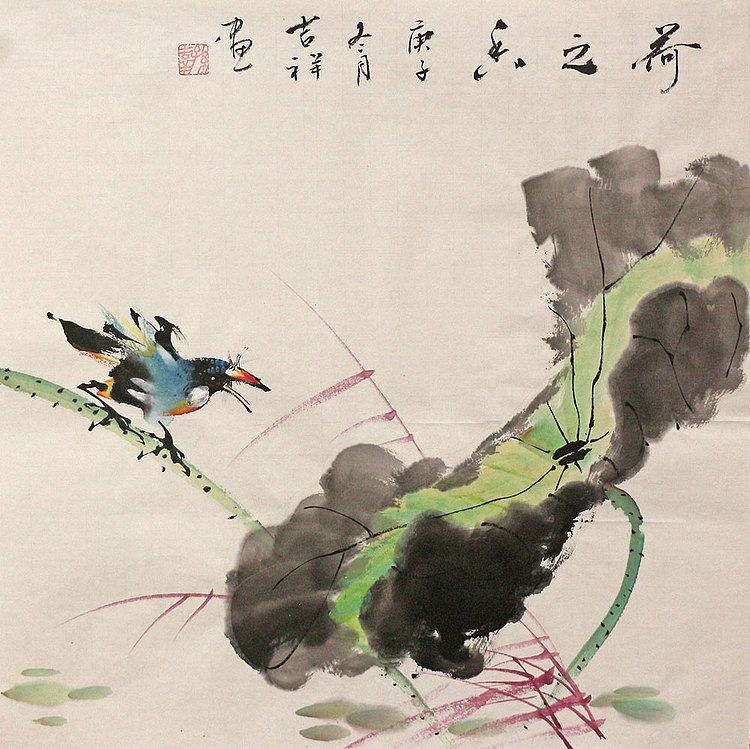 荷之香 庚子冬月吉祥画